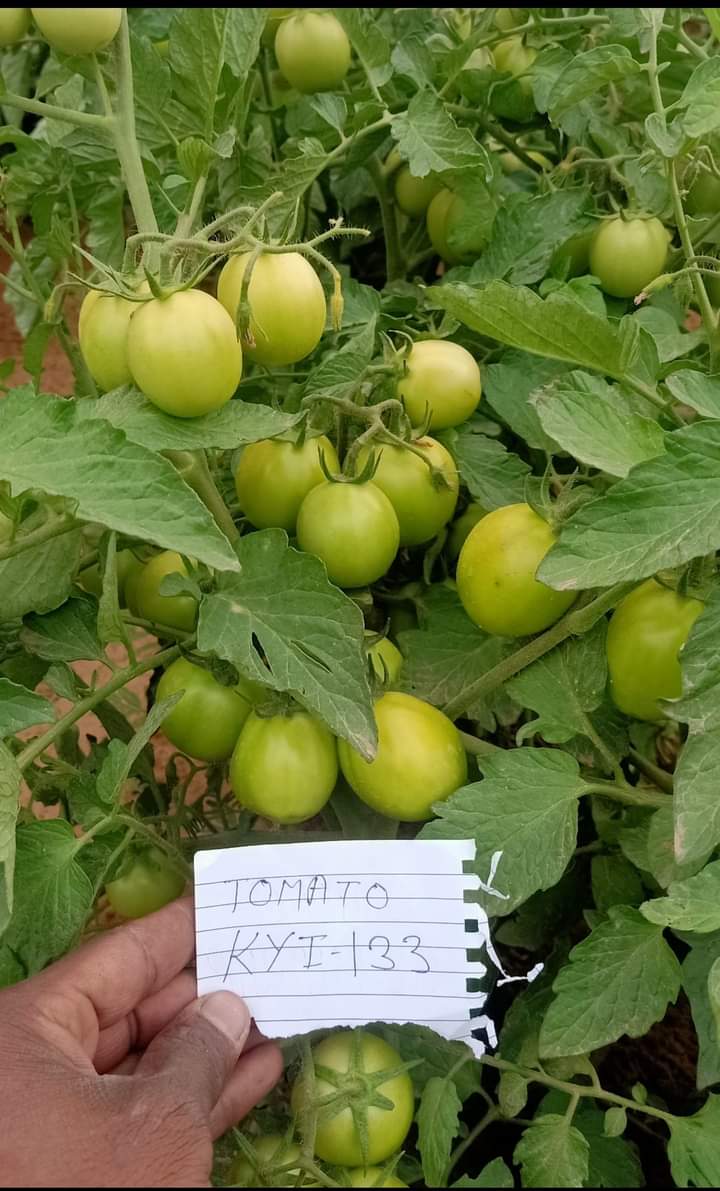 TOMATO
KYI-133